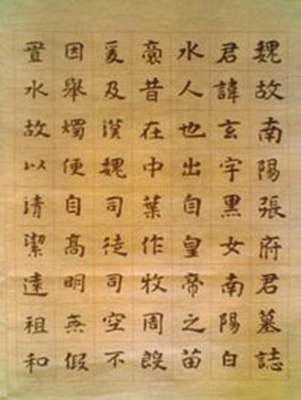 魏故南陽張府君墓誌
君諱玄字黑女南陽白
水人也出自皇帝之苗
裔昔在中葉作牧周殷
爰及漢魏司徒司空不
因舉燭便自高明無假
置水故以清潔遠祖和